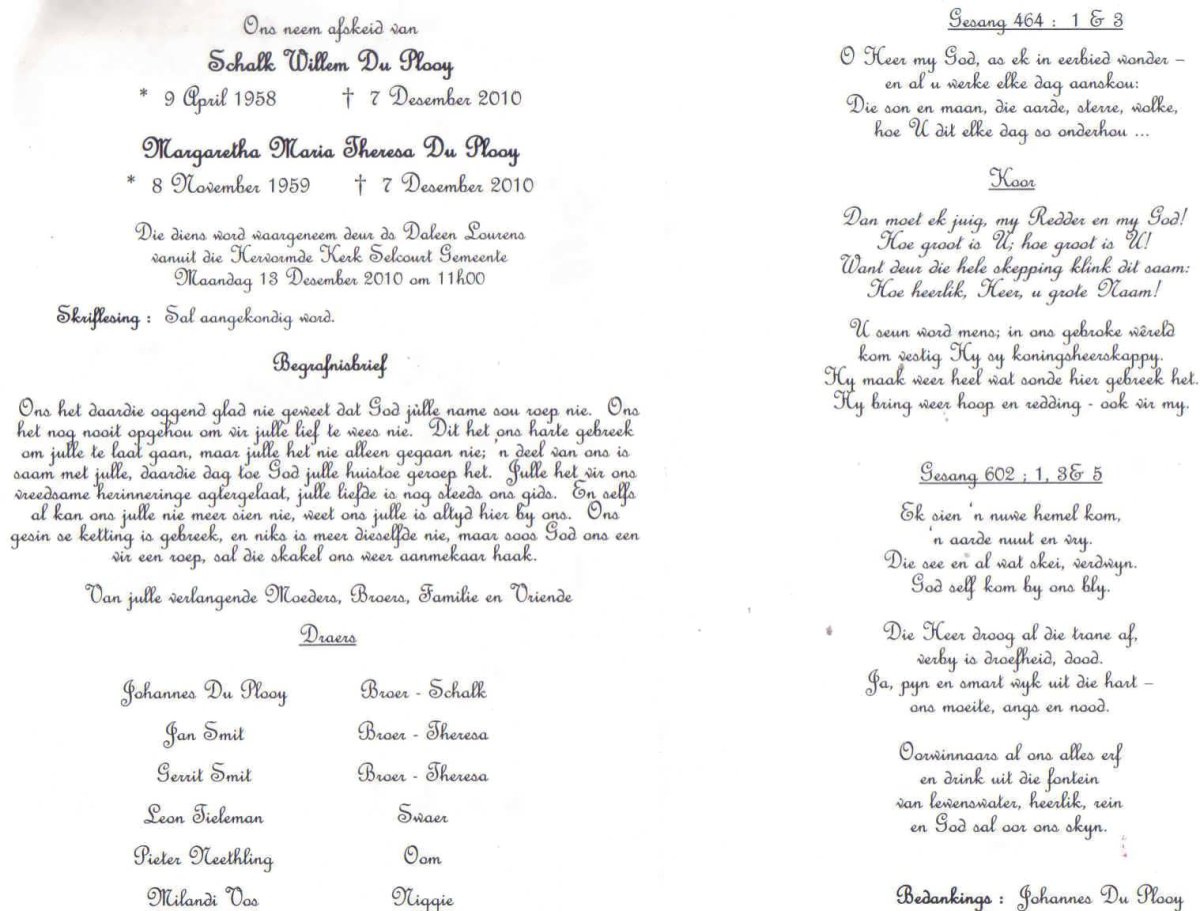 Ons neem afskeid van
Schalk Willem Du Plooy
* 9 April 1958 † 7 Desember 2010
Margaretha Maria Theresa Du Plooy
* 8 November 1959 † 7 Desember 2010
Die diens word waargeneem deur ds Daleen Lourens
vanuit die Hervormde Kerk Selcourt Gemeente
Maandag 13 Desember 2010 om 11h00
Skriflesing : Sal aangekondig word.
Begrafnisbrief
Ons het daardie oggend glad nie geweet dat God jùlle name sou roep nie. Ons
het nog nooit opgehou om vir julle lief te wees nie. Dit het ons harte gebreek
om julle te laat gaan, maar julle het nie alleen gegaan nie; 'n deel van ons is
saam met julle, daardie dag toe God julle huistoe geroep het. Julle het vir ons
vreedsame herinneringe agtergelaat, julle liefde is nog steeds ons gids. En selfs
al kan ons julle nie meer sien nie, weet ons julle is altyd hier by ons. Ons
gesin se ketting is gebreek, en niks is meer dieselfde nie, maar soos God ons een
vir een roep, sal die skakel ons weer aanmekaar haak.
Van julle verlangende Moeders, Broers, Familie en Vriende
Draers
Johannes Du Plooy Broer - Schalk
Jan Smit Broer - Theresa
Gerrit Smit Broer - Theresa
Leon Tieleman Swaer
Pieter Neethling Oom
Milandi Vos Niggie
Gesang 464 : 1 & 3
O Heer my God, as ek in eerbied wonder –
en al u werke elke dag aanskou:
Die son en maan, die aarde, sterre, wolke,
hoe U dit elke dag so onderhou ...
Koor
Dan moet ek juig, my Redder en my God!
Hoe groot is U; hoe groot is U!
Want deur die hele skepping klink dit saam:
Hoe heerlik, Heer, u grote Naam!
U seun word mens; in ons gebroke wêreld
kom vestig Hy sy koningsheerskappy.
Hy maak weer heel wat sonde hier gebreek het.
Hy bring weer hoop en redding - ook vir my.
Gesang 602 ; 1, 3& 5
Ek sien 'n nuwe hemel kom,
'n aarde nuut en vry.
Die see en al wat skei, verdwyn.
God self kom by ons bly.
Die Heer droog al die trane af,
verby is droefheid, dood.
Ja, pyn en smart wyk uit die hart –
ons moeite, angs en nood.
Oorwinnaars al ons alles erf
en drink uit die fontein
van lewenswater, heerlik, rein
en God sal oor ons skyn.
Bedankings : Johannes Du Plooy